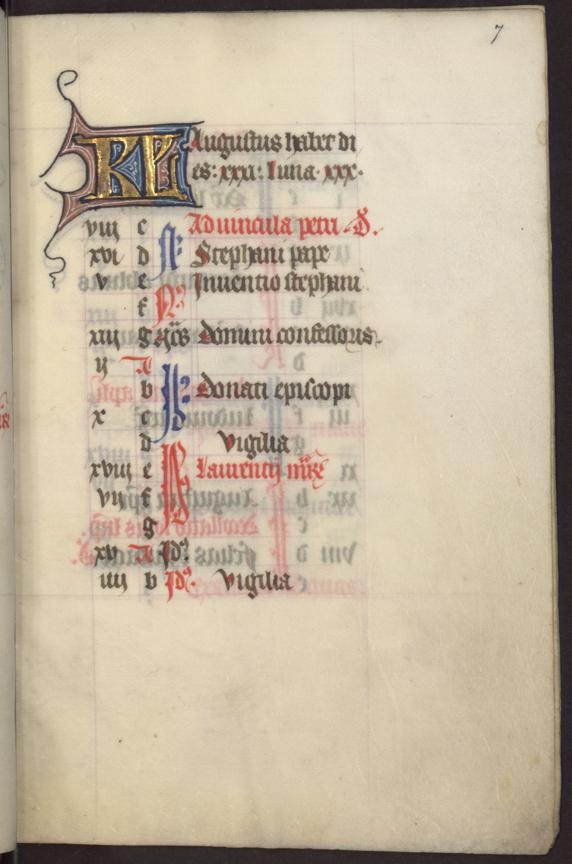 7
KL Augustus habet di
es: xxxi: luna xxx.
viii c Ad vincula petri D.
xvi d N. Stephani pape
v e Inventio stephani
f N.
xiii g domini confessoris.
ij A
b donati episcopi
x c
d vigilia
xviii e Laurentii mr̄
vii f
g
xv A Id.
iiii b Id. vigilia